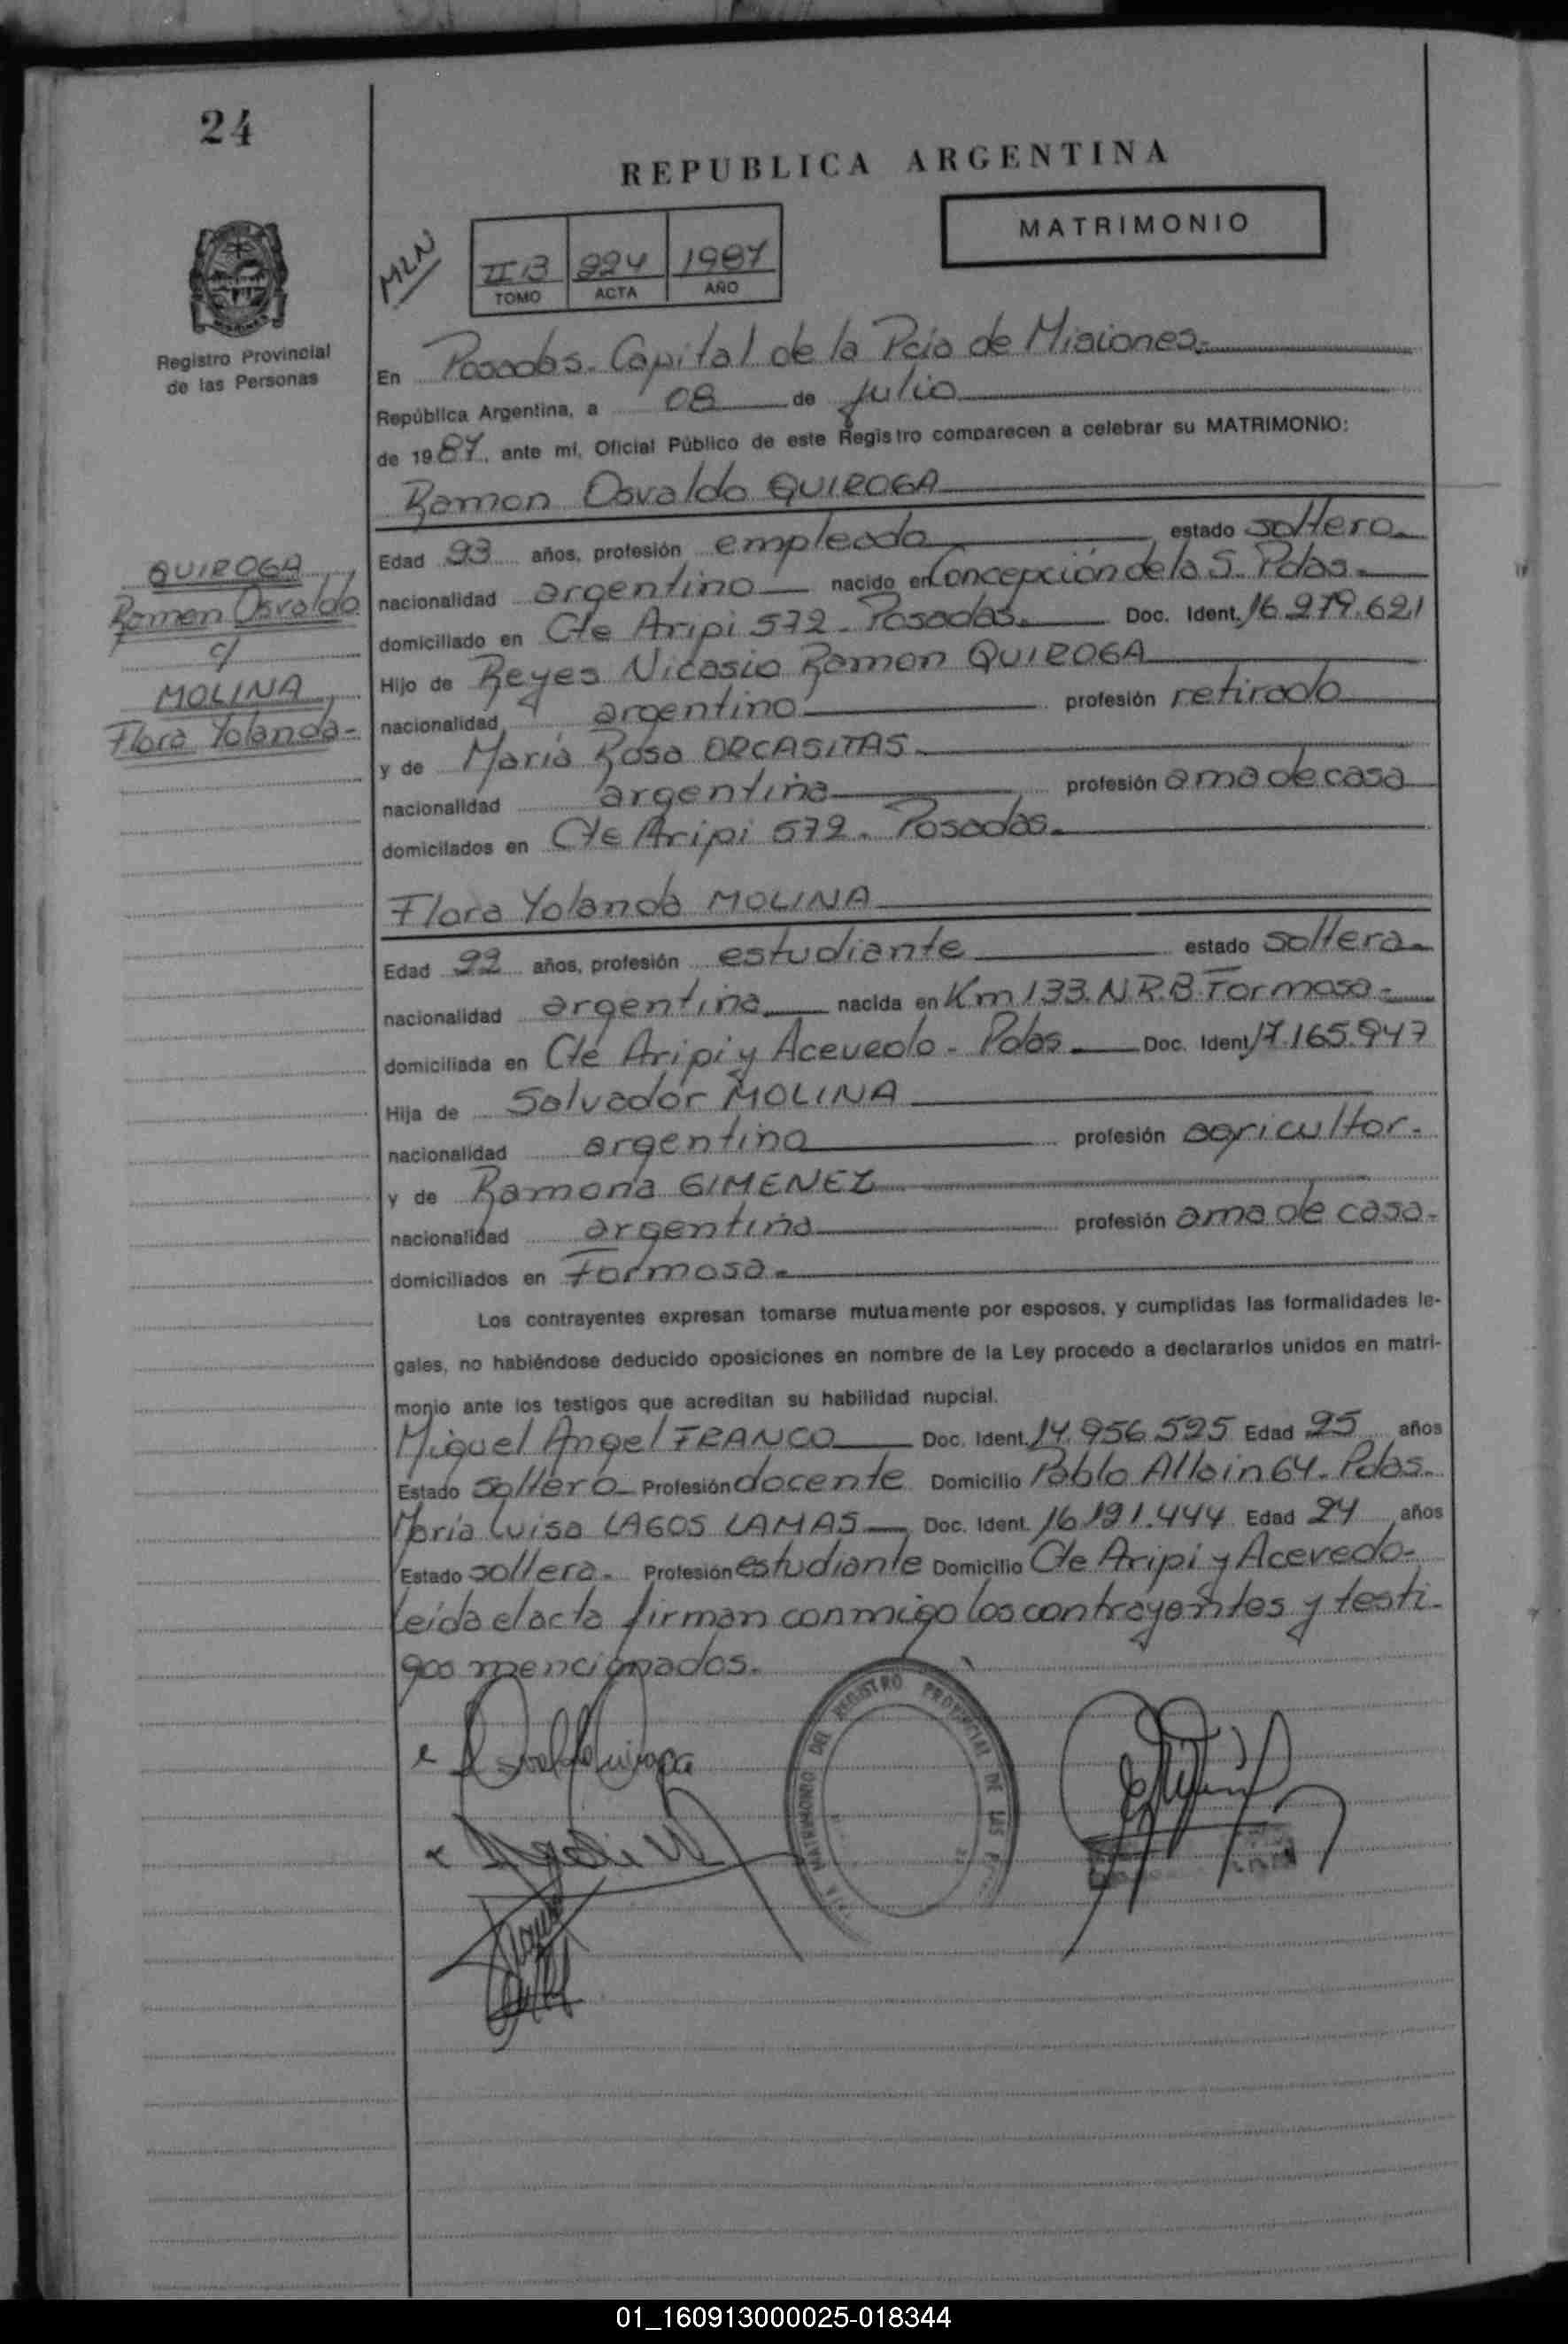 24
REPUBLICA ARGENTINA
MATRIMONIO
MLN
II B 224 1987
TOMO ACTA AÑO
Registro Provincial
de las Personas
En Posadas. Capital de la Pcia de Misiones.-
República Argentina, a 08 de julio
de 1987, ante mí, Oficial Público de este Registro comparecen a celebrar su MATRIMONIO:
Ramon Osvaldo QUIROGA
QUIROGA
Ramon Osvaldo
c/
MOLINA
Flora Yolanda-
Edad 23 años, profesión empleado estado soltero.
nacionalidad argentino nacido en Concepción de la S. Pdas.
domiciliado en Cte Aripi 572. Posadas. Doc. Ident. 16.279.621
Hijo de Reyes Nicasio Ramon QUIROGA
nacionalidad argentino profesión retirado
y de María Rosa ORCASITAS
nacionalidad argentina profesión ama de casa
domicilados en Cte Aripi 572. Posadas.
Flora Yolanda MOLINA
Edad 22 años, profesión estudiante estado soltera.
nacionalidad argentina nacida en Km 133. N.R.B. Formosa-
domiciliada en Cte Aripi y Acevedo - Pdas Doc. Ident. 17.165.947
Hija de Salvador MOLINA
nacionalidad argentino profesión agricultor.
y de Ramona GIMENEZ
nacionalidad argentina profesión ama de casa.
domiciliados en Formosa.
Los contrayentes expresan tomarse mutuamente por esposos, y cumplidas las formalidades le-
gales, no habiéndose deducido oposiciones en nombre de la Ley procedo a declararlos unidos en matri-
monio ante los testigos que acreditan su habilidad nupcial.
Miguel Angel FRANCO Doc. Ident. 14.956.525 Edad 25 años
Estado soltero Profesión docente Domicilio Pablo Allain 64. Pdas.
María Luisa LAGOS LAMAS Doc. Ident. 16.121.444 Edad 24 años
Estado soltera. Profesión estudiante Domicilio Cte Aripi y Acevedo-
Leída el acta firman conmigo los contrayentes y testi-
gos mencionados.
MATRIMONIO DEL REGISTRO PROVINCIAL DE LAS
01_160913000025-018344